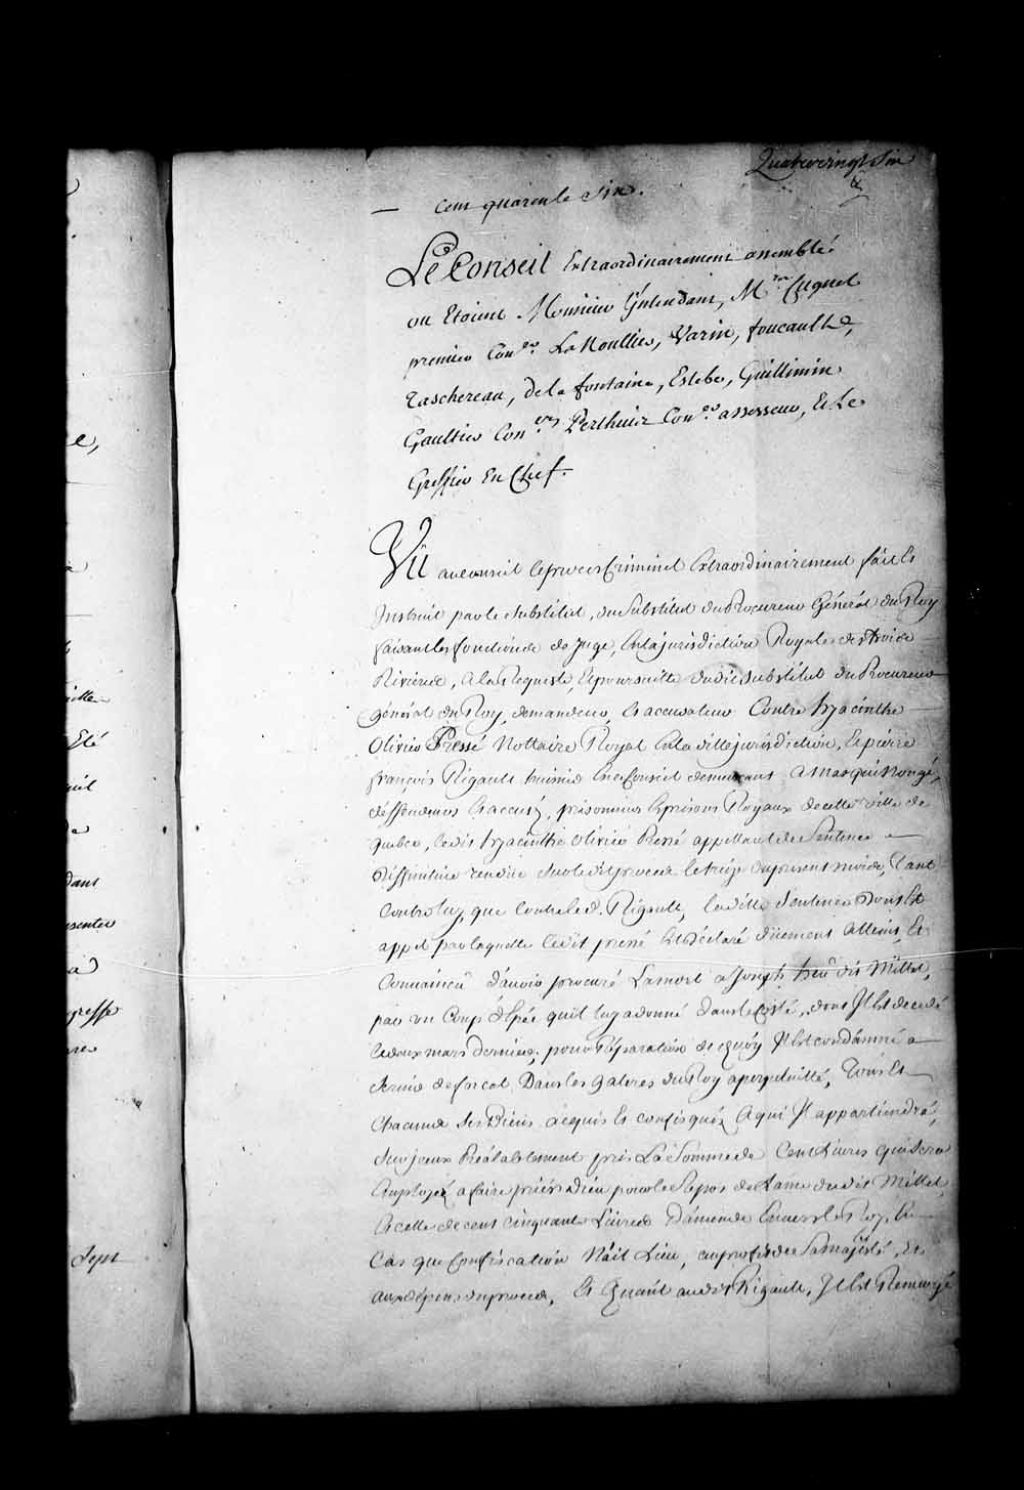 Quatrevingt Six
cent quarente Six.
Le Conseil Extraordinairement assemblé
ou Etoient Monsieur L'intendant, Mre Cugnet
premier Coner. La Noullier, Varin, foucault,
Taschereau, de la fontaine, Estebe, Guillimin
Gaultier Coners Perthuis Coner assesseur, Et Le
Greffier En Chef.
Vû au conseil le procès Criminel Extraordinairement fait Et
Instruit par le substitut, du Substitut du Procureur Général du Roy
faisant les fonctions de Juge, En la jurisdiction Royale des trois
Rivieres, a la Requeste, Et poursuitte dudit substitut du Procureur
général du Roy, demandeur, Et accusateur Contre hyacinthe
Olivier Pressé Nottaire Royal En la ditte jurisdiction, Et pierre
françois Rigault huissier En ce Conseil demeurant a Masquinongé,
deffendeurs Et accusez, prisonniers Es prisons Royaux de cette ville de
quebec, ledit hyacinthe olivier Pressé appellant de Sentence
Diffinitive rendüe sur le dit procès le treize du present mois, Tant
Contre luy, que Contre led. Rigault, la ditte Sentence dont Est
appel par laquelle ledit pressé Est déclaré düement Atteint, Et
Convaincu d'avoir procuré La mort a Joseph heu dit Millet,
par un Coup d'épée qu'il luy a donné dans le Costé, dont Il Est decedé
le deux mars dernier, pour Réparation de quoy Il Est condamné a
servir de forcat Dans les galeres du Roy a perpetuitté, Tous Et
Chacuns Ses Biens acquis Et confisquéz a qui Il appartiendra,
sur jceux Préalablement pris La Somme de Cent Livres qui sera
Employéé a faire prier dieu pour le Repos de l'ame dudit Millet,
Et celle de cent cinquante Livres D'amende Envers le Roy, En
Cas que Confiscation N'ait Lieu, au profit de Sa Majesté, Et
aux dépens du procès, Et Quant audit Rigault, Il Est Renvoyé
ille
Eté
dans
senter
greffe
Sept